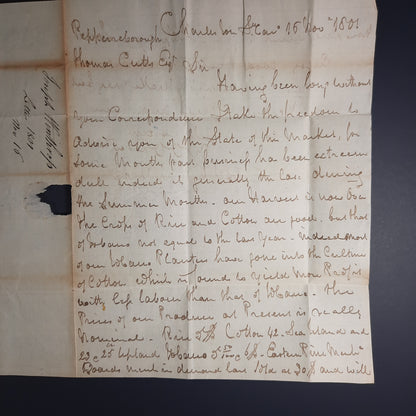 Charleston So Caro 16 Novr 1801
Pepperrellborough
Thomas Cutts Esqr Sir
Having been long without
your Correspondence I take the freedom to
Advise you of the State of this Market, for
Some Months past business has been extreem
dull indeed it generally the case during
the Summer Months - our Harvest is now Over
the Crops of Rice and Cotton are good, but that
of tobacco not equal to the last Year - indeed most
of our tobacco Planters have gone into the Culture
of Cotton which is found to Yield more Profit
with less labour than that of tobacco. The
Prices of our Produce at Present is really
Nominal. Rice Cotton 42. Sea Island and
23 @ 25 Upland tobacco
Boards much in demand last Sold at 20 $ and will
Joseph Winthrop's
Letter 1801
No 16